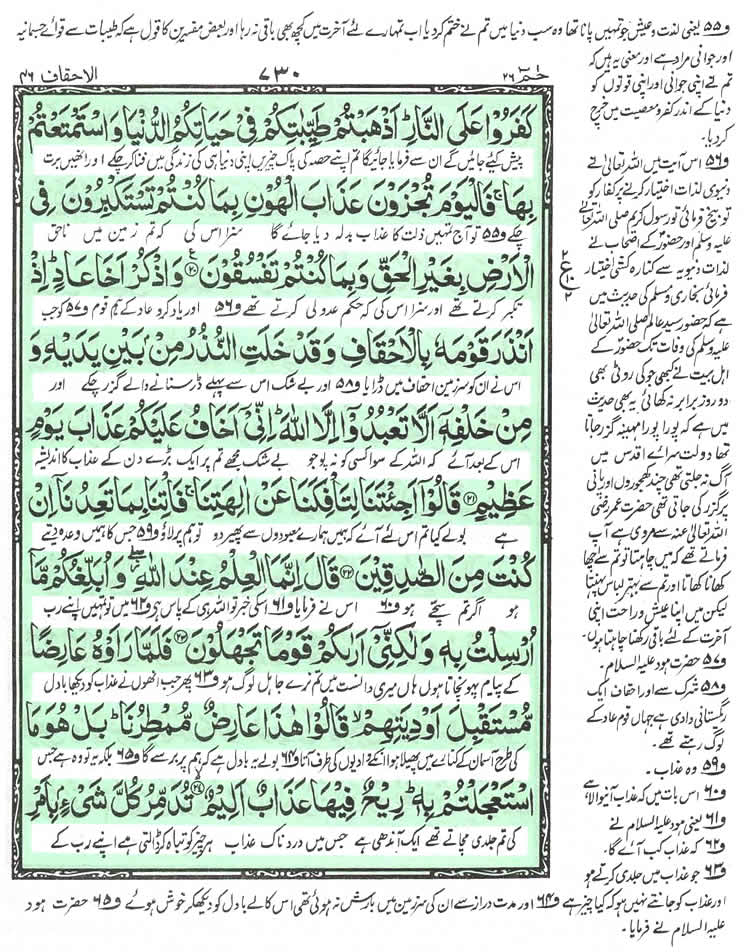 و۵۵ یعنی لذت و عیش جو تمہیں پانا تھا وہ سب دنیا میں تم نے ختم کردیا اب تمہارے لئے آخرت میں کچھ بھی باقی نہ رہا اور بعض مفسرین کا قول ہے کہ طیبات سے قوائے جسمانیہ
حٰمٓ ۲۶
۷۳۰
الاحقاف ۴۶
كَفَرُوْا عَلَى النَّارِ ؕ اَذْهَبْتُمْ طَيِّبٰتِكُمْ فِيْ حَيَاتِكُمُ الدُّنْيَا وَاسْتَمْتَعْتُمْ
پیش کیئے جائیں گے ان سے فرمایا جائیگا تم اپنے حصہ کی پاک چیزیں اپنی دنیا ہی کی زندگی میں فنا کر چکے اور انھیں برت
بِهَا ۚ فَالْيَوْمَ تُجْزَوْنَ عَذَابَ الْهُوْنِ بِمَا كُنْتُمْ تَسْتَكْبِرُوْنَ فِي
چکے و۵۵ تو آج تمہیں ذلت کا عذاب بدلہ دیا جائے گا سزا اس کی کہ تم زمین میں ناحق
الْاَرْضِ بِغَيْرِ الْحَقِّ وَبِمَا كُنْتُمْ تَفْسُقُوْنَ ۝۲۰ وَاذْكُرْ اَخَا عَادٍ ؕ اِذْ
تکبر کرتے تھے اور سزا اس کی کہ حکم عدولی کرتے تھے و۵۶ اور یاد کرو عاد کے ہم قوم و۵۷ کو جب
اَنْذَرَ قَوْمَهٗ بِالْاَحْقَافِ وَقَدْ خَلَتِ النُّذُرُ مِنْۢ بَيْنِ يَدَيْهِ وَ
اس نے ان کو سرزمین احقاف میں ڈرایا و۵۸ اور بے شک اس سے پہلے ڈر سنانے والے گزر چکے اور
مِنْ خَلْفِهٖۤ اَلَّا تَعْبُدُوْۤا اِلَّا اللّٰهَ ؕ اِنِّيْۤ اَخَافُ عَلَيْكُمْ عَذَابَ يَوْمٍ
اس کے بعد آئے کہ اللہ کے سوا کسی کو نہ پوجو بے شک مجھے تم پر ایک بڑے دن کے عذاب کا اندیشہ
عَظِيْمٍ ۝۲۱ قَالُوْۤا اَجِئْتَنَا لِتَاْفِكَنَا عَنْ اٰلِهَتِنَا ۚ فَاْتِنَا بِمَا تَعِدُنَاۤ اِنْ
ہے بولے کیا تم اس لئے آئے کہ ہمیں ہمارے معبودوں سے پھیر دو تو ہم پر لاؤ و۵۹ جس کا ہمیں وعدہ دیتے
كُنْتَ مِنَ الصّٰدِقِيْنَ ۝۲۲ قَالَ اِنَّمَا الْعِلْمُ عِنْدَ اللّٰهِ ۖؗ وَاُبَلِّغُكُمْ مَّاۤ
ہو اگر تم سچے ہو و۶۰ اس نے فرمایا و۶۱ اسکی خبر تو اللہ ہی کے پاس ہے و۶۲ میں تو تمہیں اپنے رب
اُرْسِلْتُ بِهٖ وَلٰكِنِّيْۤ اَرٰىكُمْ قَوْمًا تَجْهَلُوْنَ ۝۲۳ فَلَمَّا رَاَوْهُ عَارِضًا
کے پیام پہونچاتا ہوں ہاں میری دانست میں تم نرے جاہل لوگ ہو و۶۳ پھر جب انھوں نے عذاب کو دیکھا بادل
مُّسْتَقْبِلَ اَوْدِيَتِهِمْ ۙ قَالُوْا هٰذَا عَارِضٌ مُّمْطِرُنَا ؕ بَلْ هُوَ مَا
کی طرح آسمان کے کنارے میں پھیلا ہوا انکے وادیوں کی طرف آتا و۶۴ بولے یہ بادل ہے کہ ہم پر برسے گا و۶۵ بلکہ یہ تو وہ ہے جس
اسْتَعْجَلْتُمْ بِهٖ ؕ رِيْحٌ فِيْهَا عَذَابٌ اَلِيْمٌ ۝۲۴ تُدَمِّرُ كُلَّ شَيْءٍۭ بِاَمْرِ
کی تم جلدی مچاتے تھے ایک آندھی ہے جس میں دردناک عذاب ہر چیز کو تباہ کر ڈالتی ہے اپنے رب کے
اور جوانی مراد ہے اور معنی یہ ہیں کہ
تم نے اپنی جوانی اور اپنی قوتوں کو
دنیا کے اندر کفر و معصیت میں خرچ
کردیا۔
و۵۶ اس آیت میں اللہ تعالیٰ نے
دنیوی لذات اختیار کرنے پر کفار کو
توبیخ فرمائی تو رسول کریم صلی اللہ تعالیٰ
علیہ وسلم اور حضور کے اصحاب نے
لذات دنیویہ سے کنارہ کشی اختیار
فرمائی بخاری و مسلم کی حدیث میں
ہے کہ حضور سید عالم صلی اللہ تعالیٰ
علیہ وسلم کی وفات تک حضور کے
اہل بیت نے کبھی جو کی روٹی بھی
دو روز برابر نہ کھائی یہ بھی حدیث
میں ہے کہ پورا پورا مہینہ گزر جاتا
تھا دولت سرائے اقدس میں
آگ نہ جلتی تھی چند کھجوروں اور پانی
پر گزر کی جاتی تھی حضرت عمر رضی
اللہ تعالیٰ عنہ سے مروی ہے آپ
فرماتے تھے کہ میں چاہتا تو تم سے اچھا
کھانا کھاتا اور تم سے بہتر لباس پہنتا
لیکن میں اپنا عیش و راحت اپنی
آخرت کے لئے باقی رکھنا چاہتا ہوں۔
و۵۷ حضرت ہود علیہ السلام۔
و۵۸ شرک سے اور احقاف ایک
رگستانی وادی ہے جہاں قوم عاد کے
لوگ رہتے تھے۔
و۵۹ وہ عذاب۔
و۶۰ اس بات میں کہ عذاب آنیوالا ہے
و۶۱ یعنی ہود علیہ السلام نے
و۶۲ کہ عذاب کب آئے گا۔
و۶۳ جو عذاب میں جلدی کرتے ہو
اور عذاب کو جانتے نہیں ہو کہ کیا چیز ہے و۶۴ اور مدت دراز سے ان کی سرزمین میں بارش نہ ہوئی تھی اس کالے بادل کو دیکھ کر خوش ہوئے و۶۵ حضرت ہود
علیہ السلام نے فرمایا۔